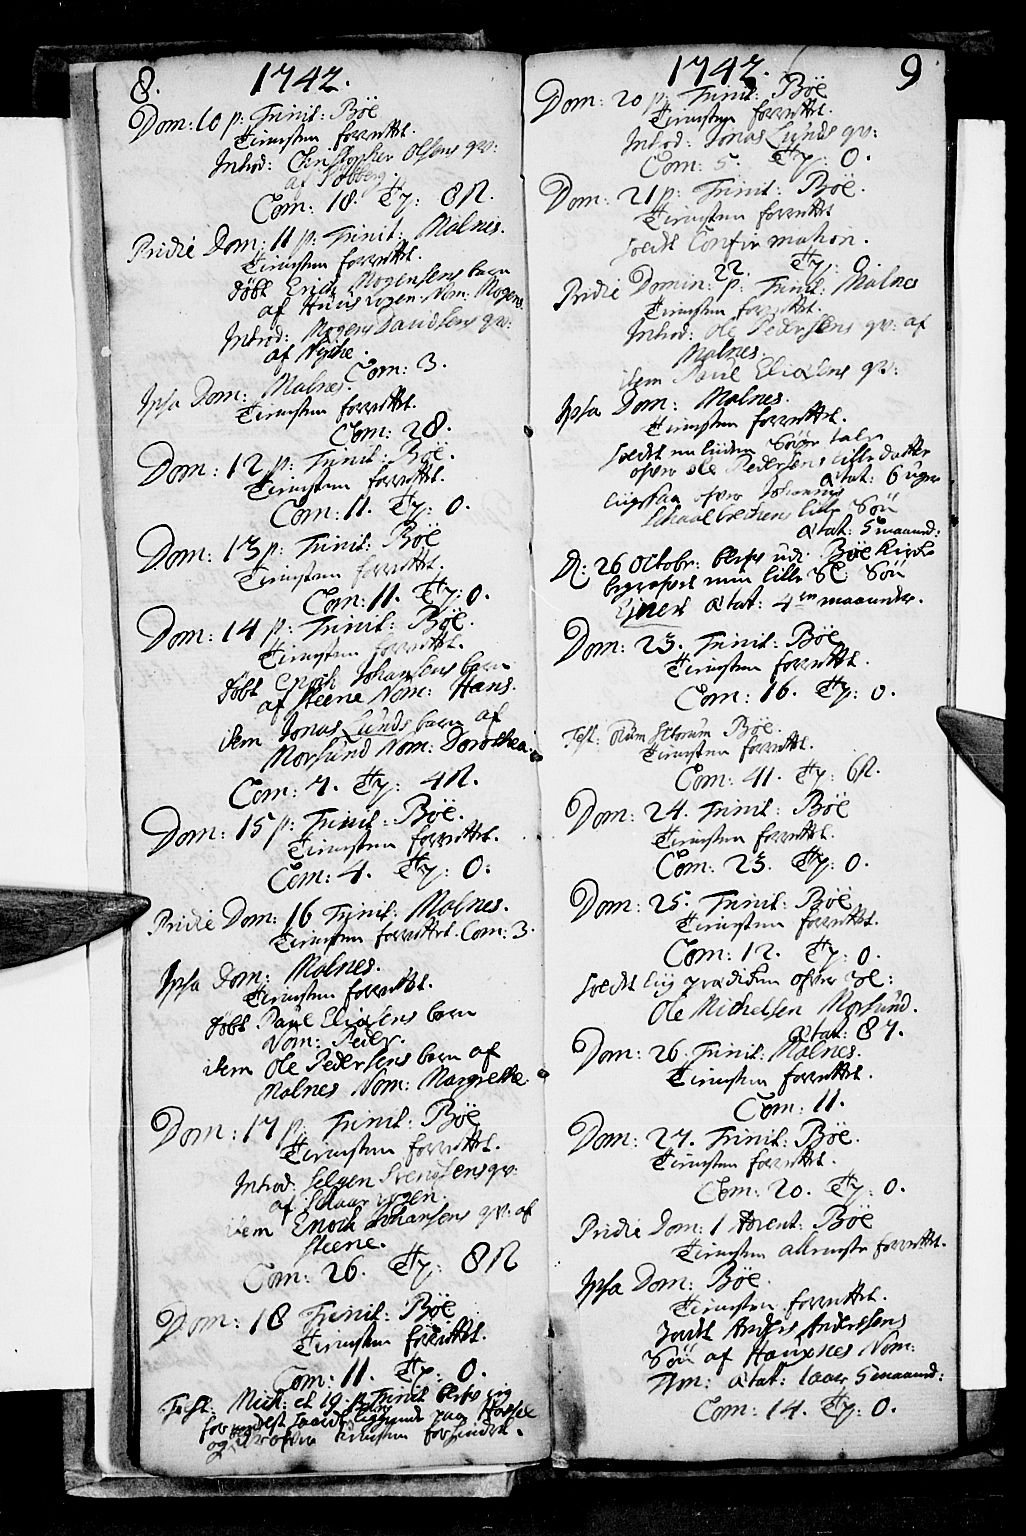 8. 1742.
Dom: 10 p: Trinit: Böe
Tienesten forrettet.
Introd: Christopher Olsens qv:
af
Com: 18. Tp: 8 R.
Pridie Dom: 11 p: Trinit: Malnes.
Tienesten forrettet.
døbt Erich Mogensens barn
af Nom: Mogens
Introd: Mogens Davidsens qv:
af
Com: 3.
Ipsa Dom: Malnes.
Tienesten forrettet.
Com: 28.
Dom: 12 p: Trinit: Böe.
Tienesten forrettet.
Com: 11. Tp: 0.
Dom: 13 p: Trinit: Böe
Tienesten forrettet.
Com: 11. Tp: 0.
Dom: 14 p: Trinit: Böe.
Tienesten forrettet.
døbt Enoch Johansens barn
af Steene Nom: Hans.
item Jonas Lunds barn af
Morsund Nom: Dorothea.
Com: 7. Tp: 4 R.
Dom: 15 p: Trinit: Böe.
Tienesten forrettet.
Com: 4. Tp: 0.
Pridie Dom: 16 Trinit: Malnes.
Tienesten forrettet. Com: 3.
Ipsa Dom: Malnes.
Tienesten forrettet.
døbt Paul Eliasens barn
Nom: Peder.
item Ole Pedersens barn af
Malnes Nom: Margrethe
Dom: 17 p: Trinit: Böe
Tienesten forrettet.
Introd: qv:
af
item Enoch Johansens qv: af
Steene.
Com: 26. Tp: 8 R
Dom: 18 Trinit: Böe
Tienesten forrettet.
Com: 11 Tp: 0.
Fest: Mich: et 19. p. Trinit blef jeg
liggende paa
og Tienesten forhindret.
1742. 9
Dom: 20 p: Trinit: Böe
Tienesten forrettet.
Introd: Jonas Lunds qv:
Com: 5. Tp: 0.
Dom: 21 p: Trinit: Böe.
Tienesten forrettet
holdt Confirmation.
Tp: 0.
Pridie Domin: 22 p: Trinit: Malnes
Tienesten forrettet.
Introd: Ole Pedersens qv: af
Malnes.
item Paul Eliasens qv:
Ipsa Dom: Malnes.
Tienesten forrettet.
holdt en liiden tale
ofver Ole Pedersens lille datter
ætat: 6 uger
liigesaa ofver Johannes
lille Søn
ætat: 5 maand:
D: 26 Octobr: blef udi Böe Kirke
begrafvet min lille Sl: Søn
Ejnert ætat: 4 maaneder.
Dom: 23. Trinit: Böe
Tienesten forrettet.
Com: 16. Tp: 0.
Fest: Omn: Sctorum Böe.
Tienesten forrettet.
Com: 41. Tp: 6 R.
Dom: 24. Trinit: Böe
Tienesten forrettet.
Com: 23. Tp: 0.
Dom: 25. Trinit: Böe
Tienesten forrettet.
Com: 12. Tp: 0.
holdt liig prædiken ofver Sl:
Ole Michelsen Morsund.
ætat: 87.
Dom: 26. Trinit: Malnes.
Tienesten forrettet.
Com: 11.
Dom: 27. Trinit: Böe.
Tienesten forrettet.
Com: 20. Tp: 0.
Pridie Dom: 1 Advent: Böe
Tienesten alleeneste forrettet.
Ipsa Dom: Böe.
Tienesten forrettet.
Anders Anderssens
Søn af Nom:
ætat: 1 aar 5 maand:
Com: 14. Tp: 0.